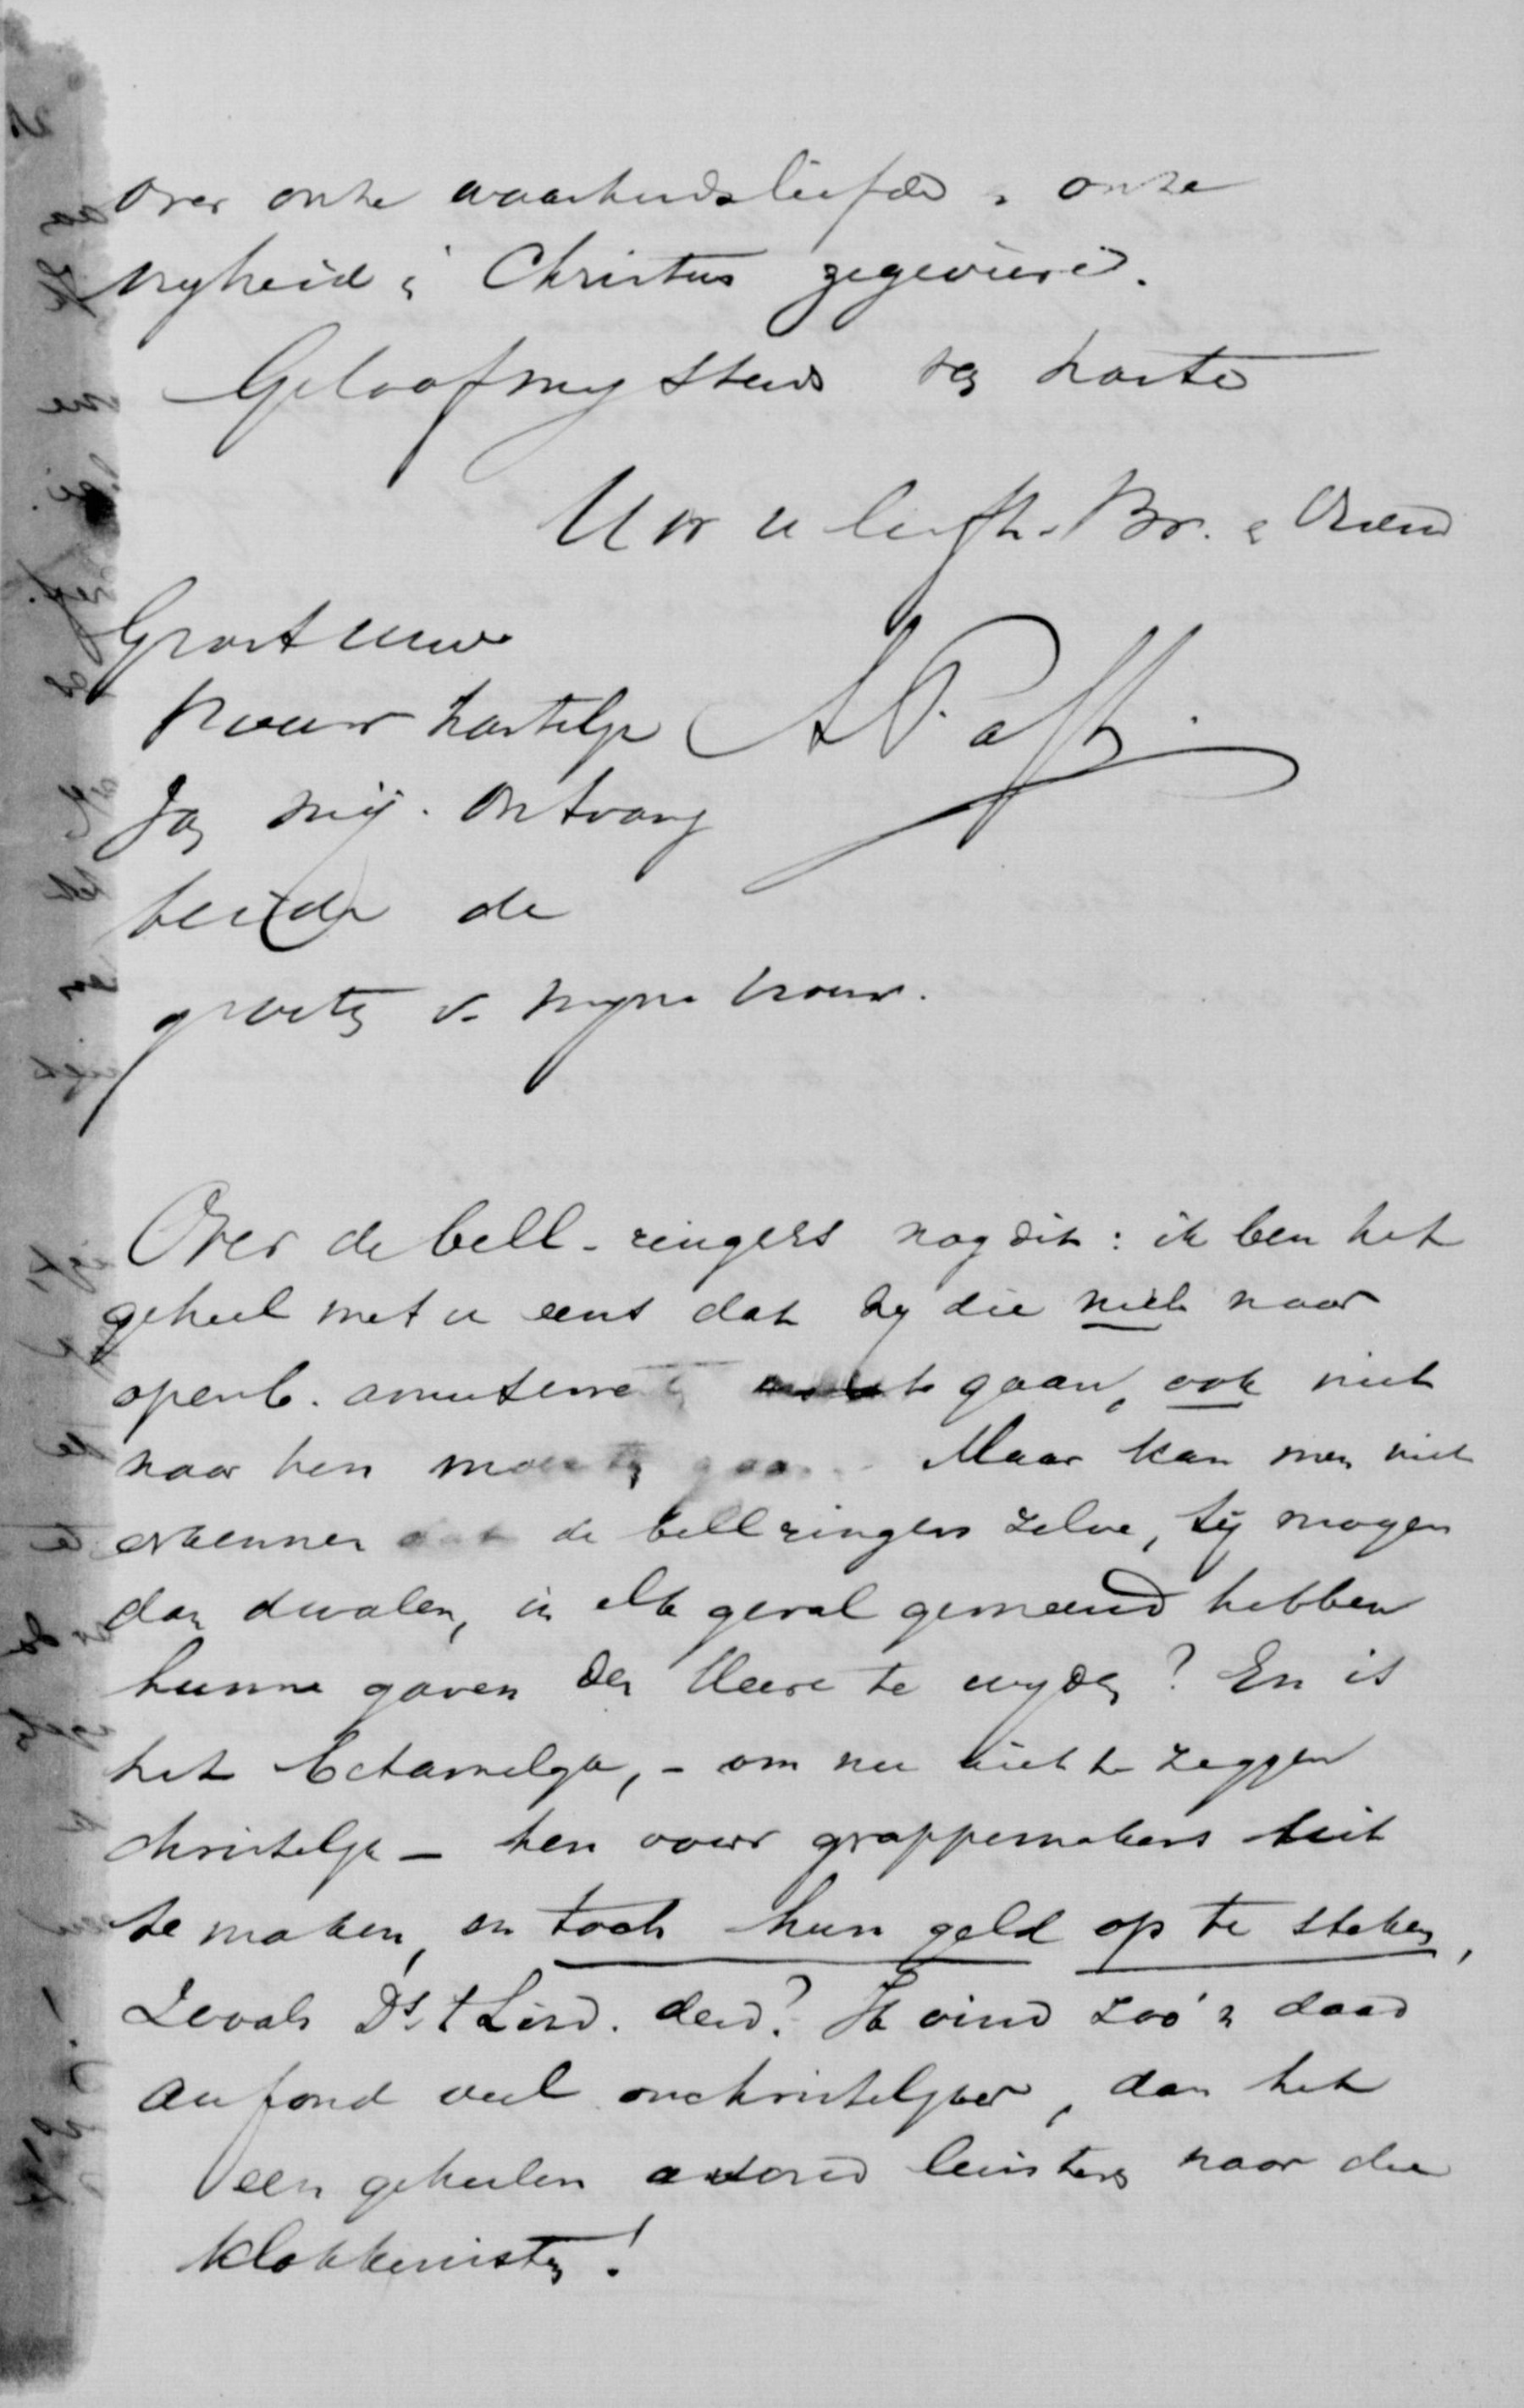 over onze waarheidsliefde & onze
vryheid i Christus zegeviere.
Geloof my steeds v. harte
Uw u liefh. Br. & Vriend
Groet uwe
vrouw hartelijk
van mij. Ontvang
beide de
groeten v. myne vrouw.
Over de bell-ringers nog dit: ik ben het
geheel met u eens dat zy die niet naar
openb. amusementen gaan, ook niet
naar hen moesten gaan. Maar kan men niet
erkennen dat de bellringers zelve, zij mogen
dan dwalen, in elk geval gemeend hebben
hunne gaven den Heere te wyden? En is
het betamelyk, - om nu niet te zeggen
christelyk - hen voor grappenmakers uit
te maken, en toch hun geld op te steken,
zooals Ds. 't Lind. deed? Ik vind zoo'n daad
au fond veel onchristelyker, dan het
een geheelen avond luisteren naar die
klokkenisten!